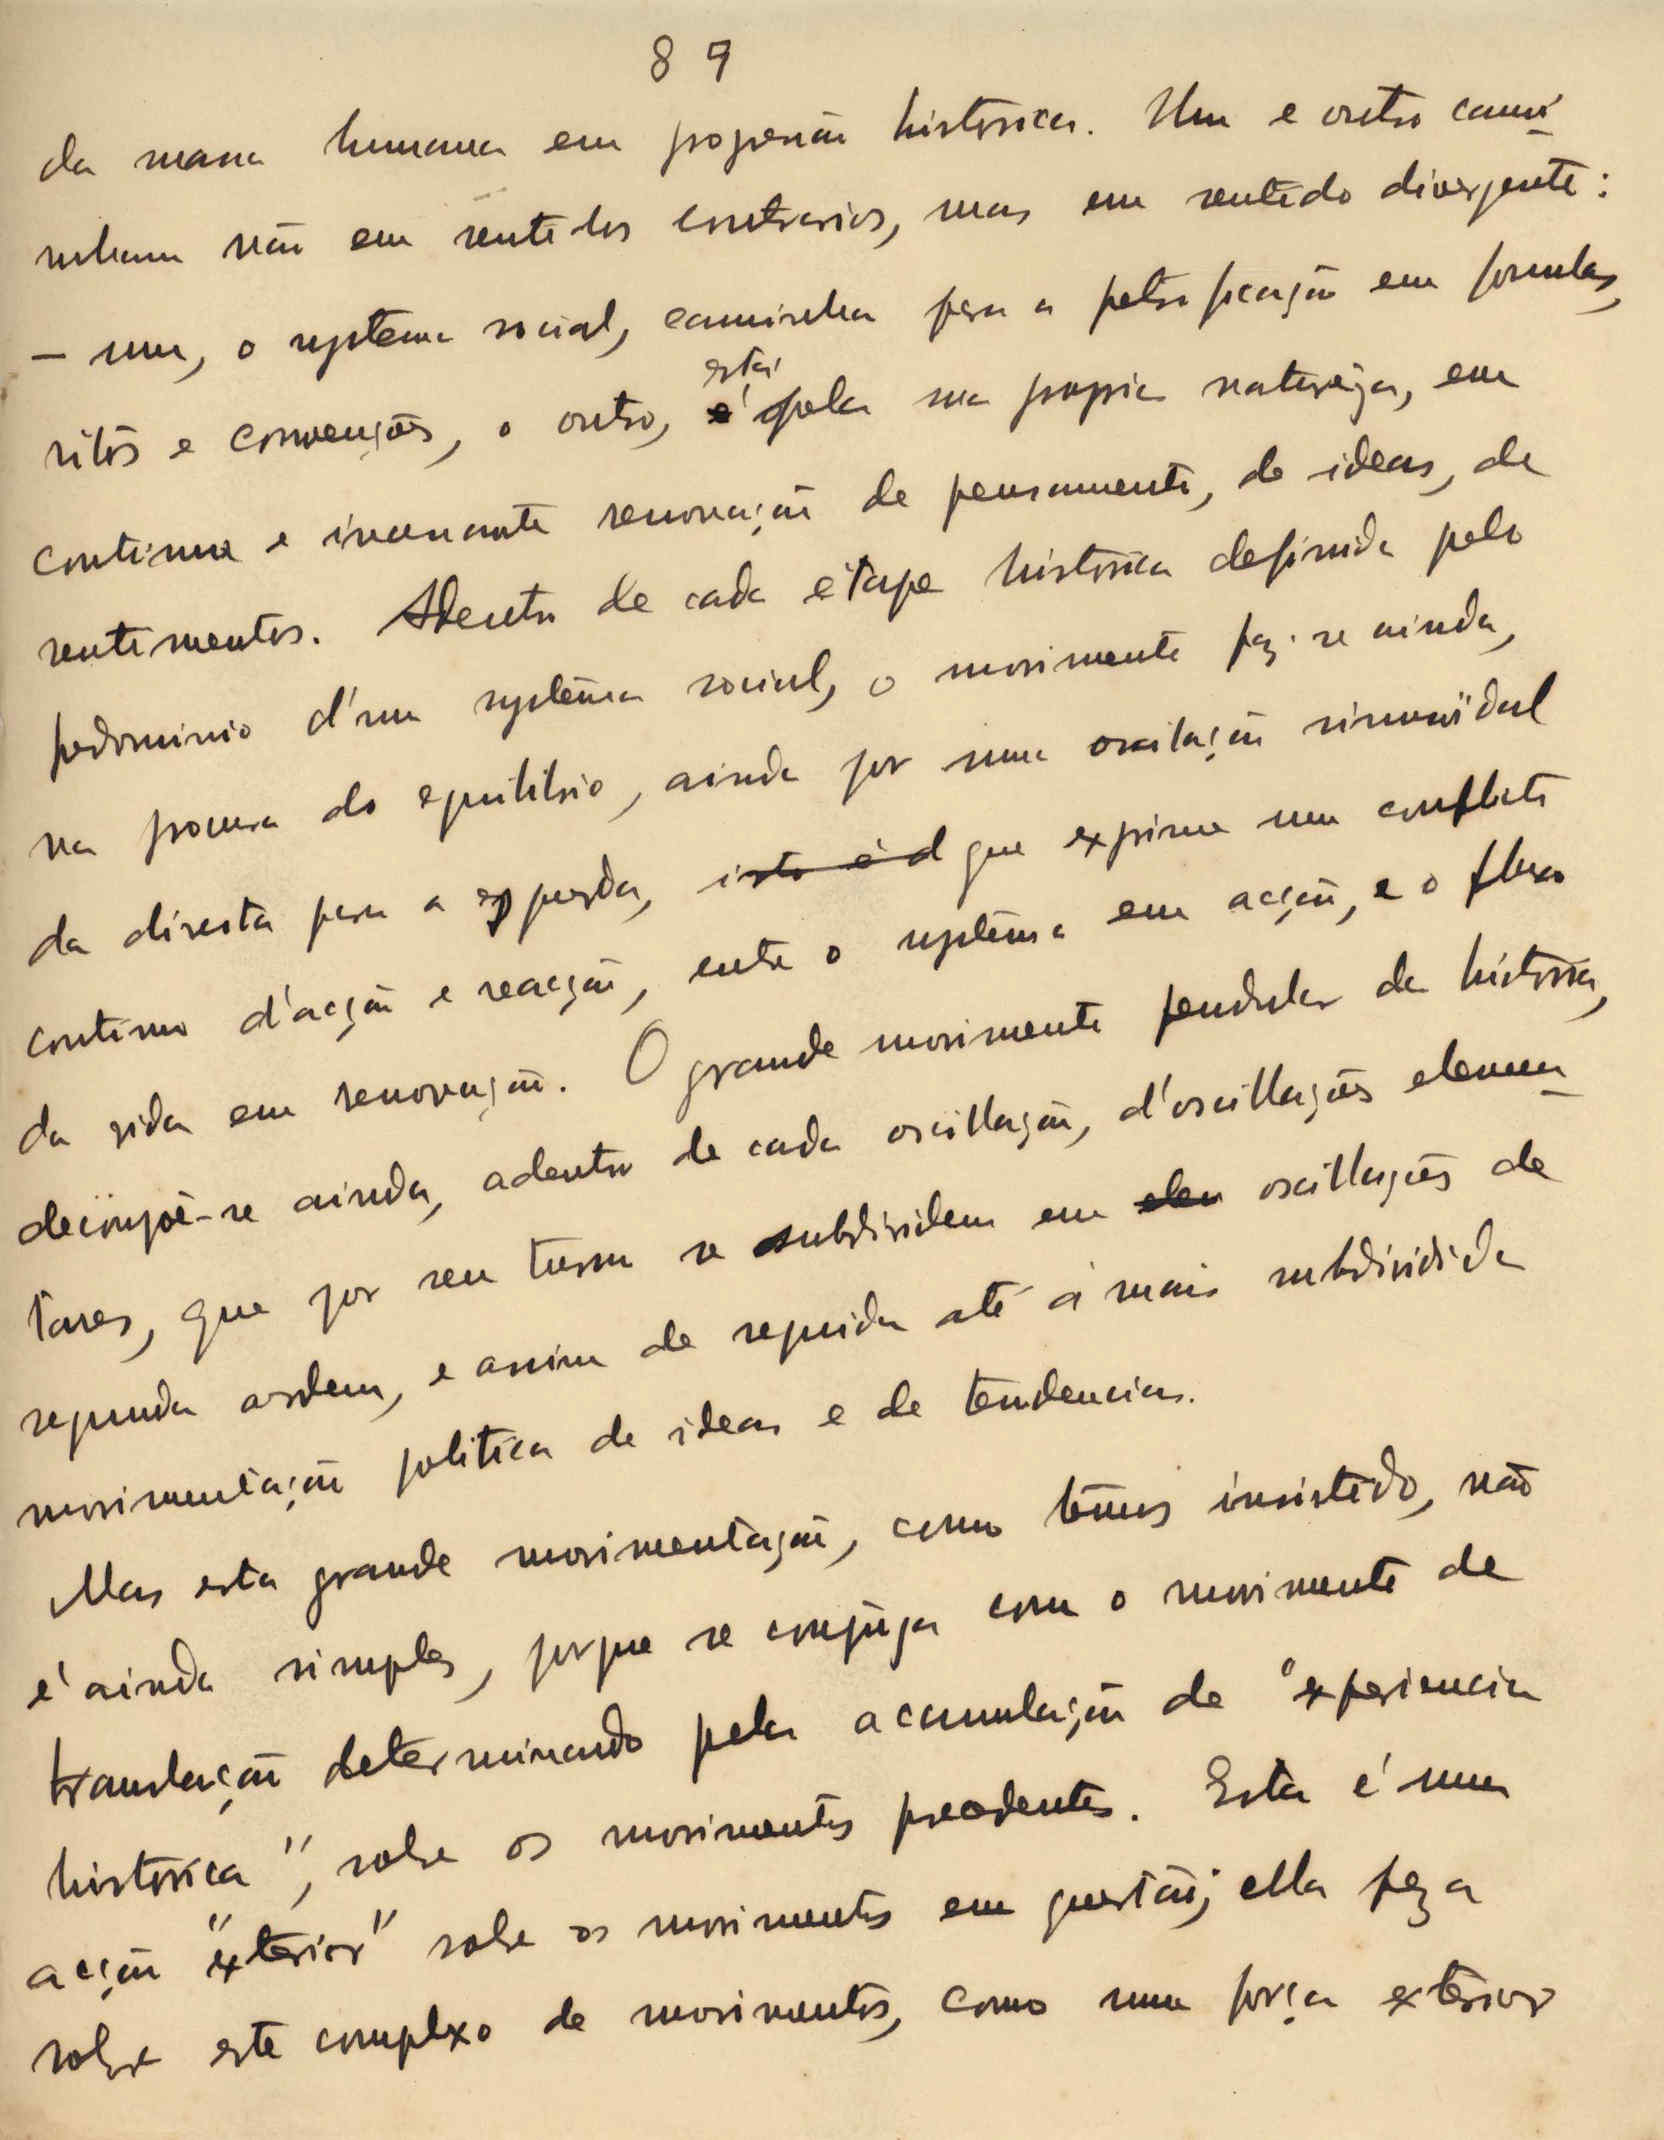 89
da massa humana em progressão historica. Um e outro cami-
nham não em sentidos contrarios, mas em sentido divergente:
— um, o systema social, caminha para a petrificação em formulas,
ritos e convenções, o outro, está pela sua propria natureza, em
continua e incessante renovação de pensamento, de ideas, de
sentimentos. Adentro de cada étape historica definida pelo
predominio d'um systema social, o movimento faz-se ainda,
na procura do equilibrio, ainda por uma oscilação sinusoïdal
da direita para a esquerda, isto é d que exprime um conflicto
continuo d'acção e reacção, entre o systema em acção, e o fluxo
da vida em renovação. O grande movimento pendular da historia,
decompõe-se ainda, adentro de cada oscillação, d'oscillações elemen-
tares, que por seu turno se subdividem em elem oscillações de
segunda ordem, e assim de seguida até á mais subdividida
movimentação politica de ideas e de tendencias.
Mas esta grande movimentação, como temos insistido, não
é ainda simples, porque se conjuga com o movimento de
translação determinando pela acumulação de "experiencia
historica", sobre os movimentos precedentes. Esta é uma
acção "exterior" sobre os movimentos em questão; ella peza
sobre este complexo de movimentos, como uma força exterior